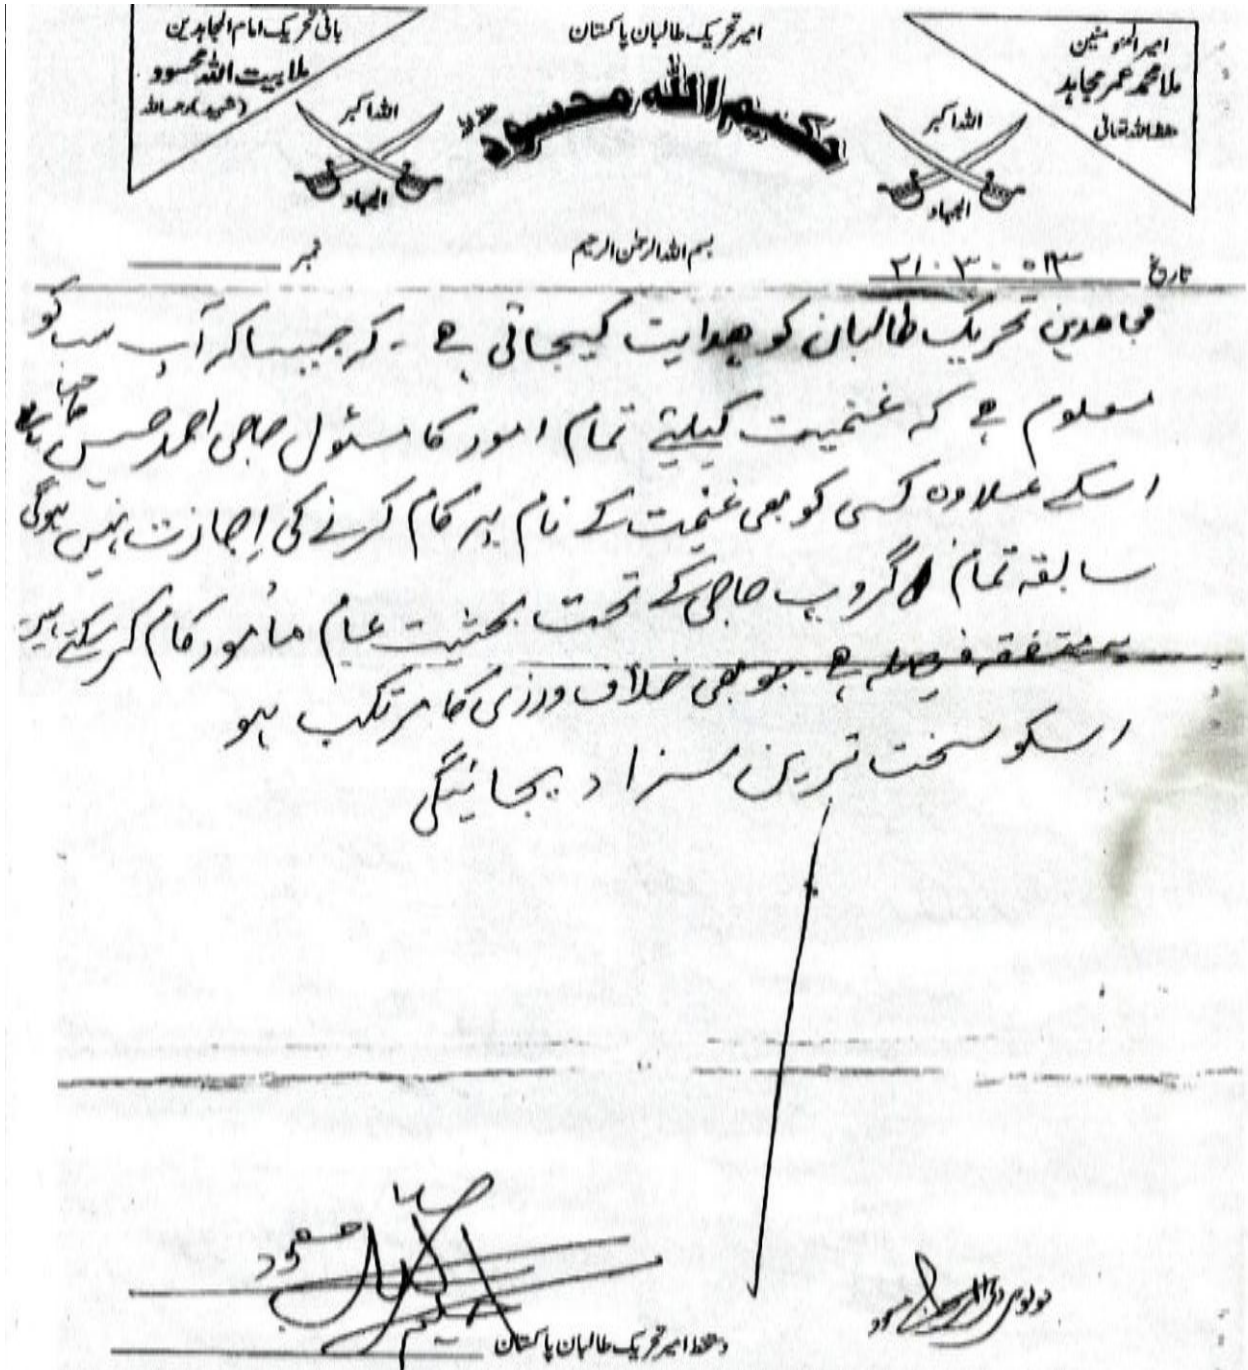 امیر المؤمنین
ملا محمد عمر مجاہد
حفظہ اللہ تعالیٰ
امیر تحریک طالبان پاکستان
حکیم اللہ محسود
حفظہ اللہ
بانی تحریک امام المجاہدین
ملا بیت اللہ محسود
(شہید) رحمہ اللہ
اللہ اکبر
الجہاد
اللہ اکبر
الجہاد
بسم اللہ الرحمٰن الرحیم
تاریخ ۲۱۔۳۔۰۱۳
نمبر
مجاھدین تحریک طالبان کو ھدایت کیجاتی ہے ۔ کہ جیسا کہ آپ سب کو
معلوم ہے کہ غنمیت کیلیئے تمام امور کا مسئول حاجی احمد حسین صاحب
اسکے علاوہ کسی کو بھی غنیمت کے نام پر کام کرنے کی اجازت نہیں ہوگی
سابقہ تمام گروپ حاجی کے تحت بحثیت عام مأمور کام کر سکتے ہیں
یہ متفقہ فیصلہ ہے ۔ جو بھی خلاف ورزی کا مرتکب ہو
اسکو سخت ترین سزا دیجائیگی
حکیم اللہ محسود
دستخط امیر تحریک طالبان پاکستان